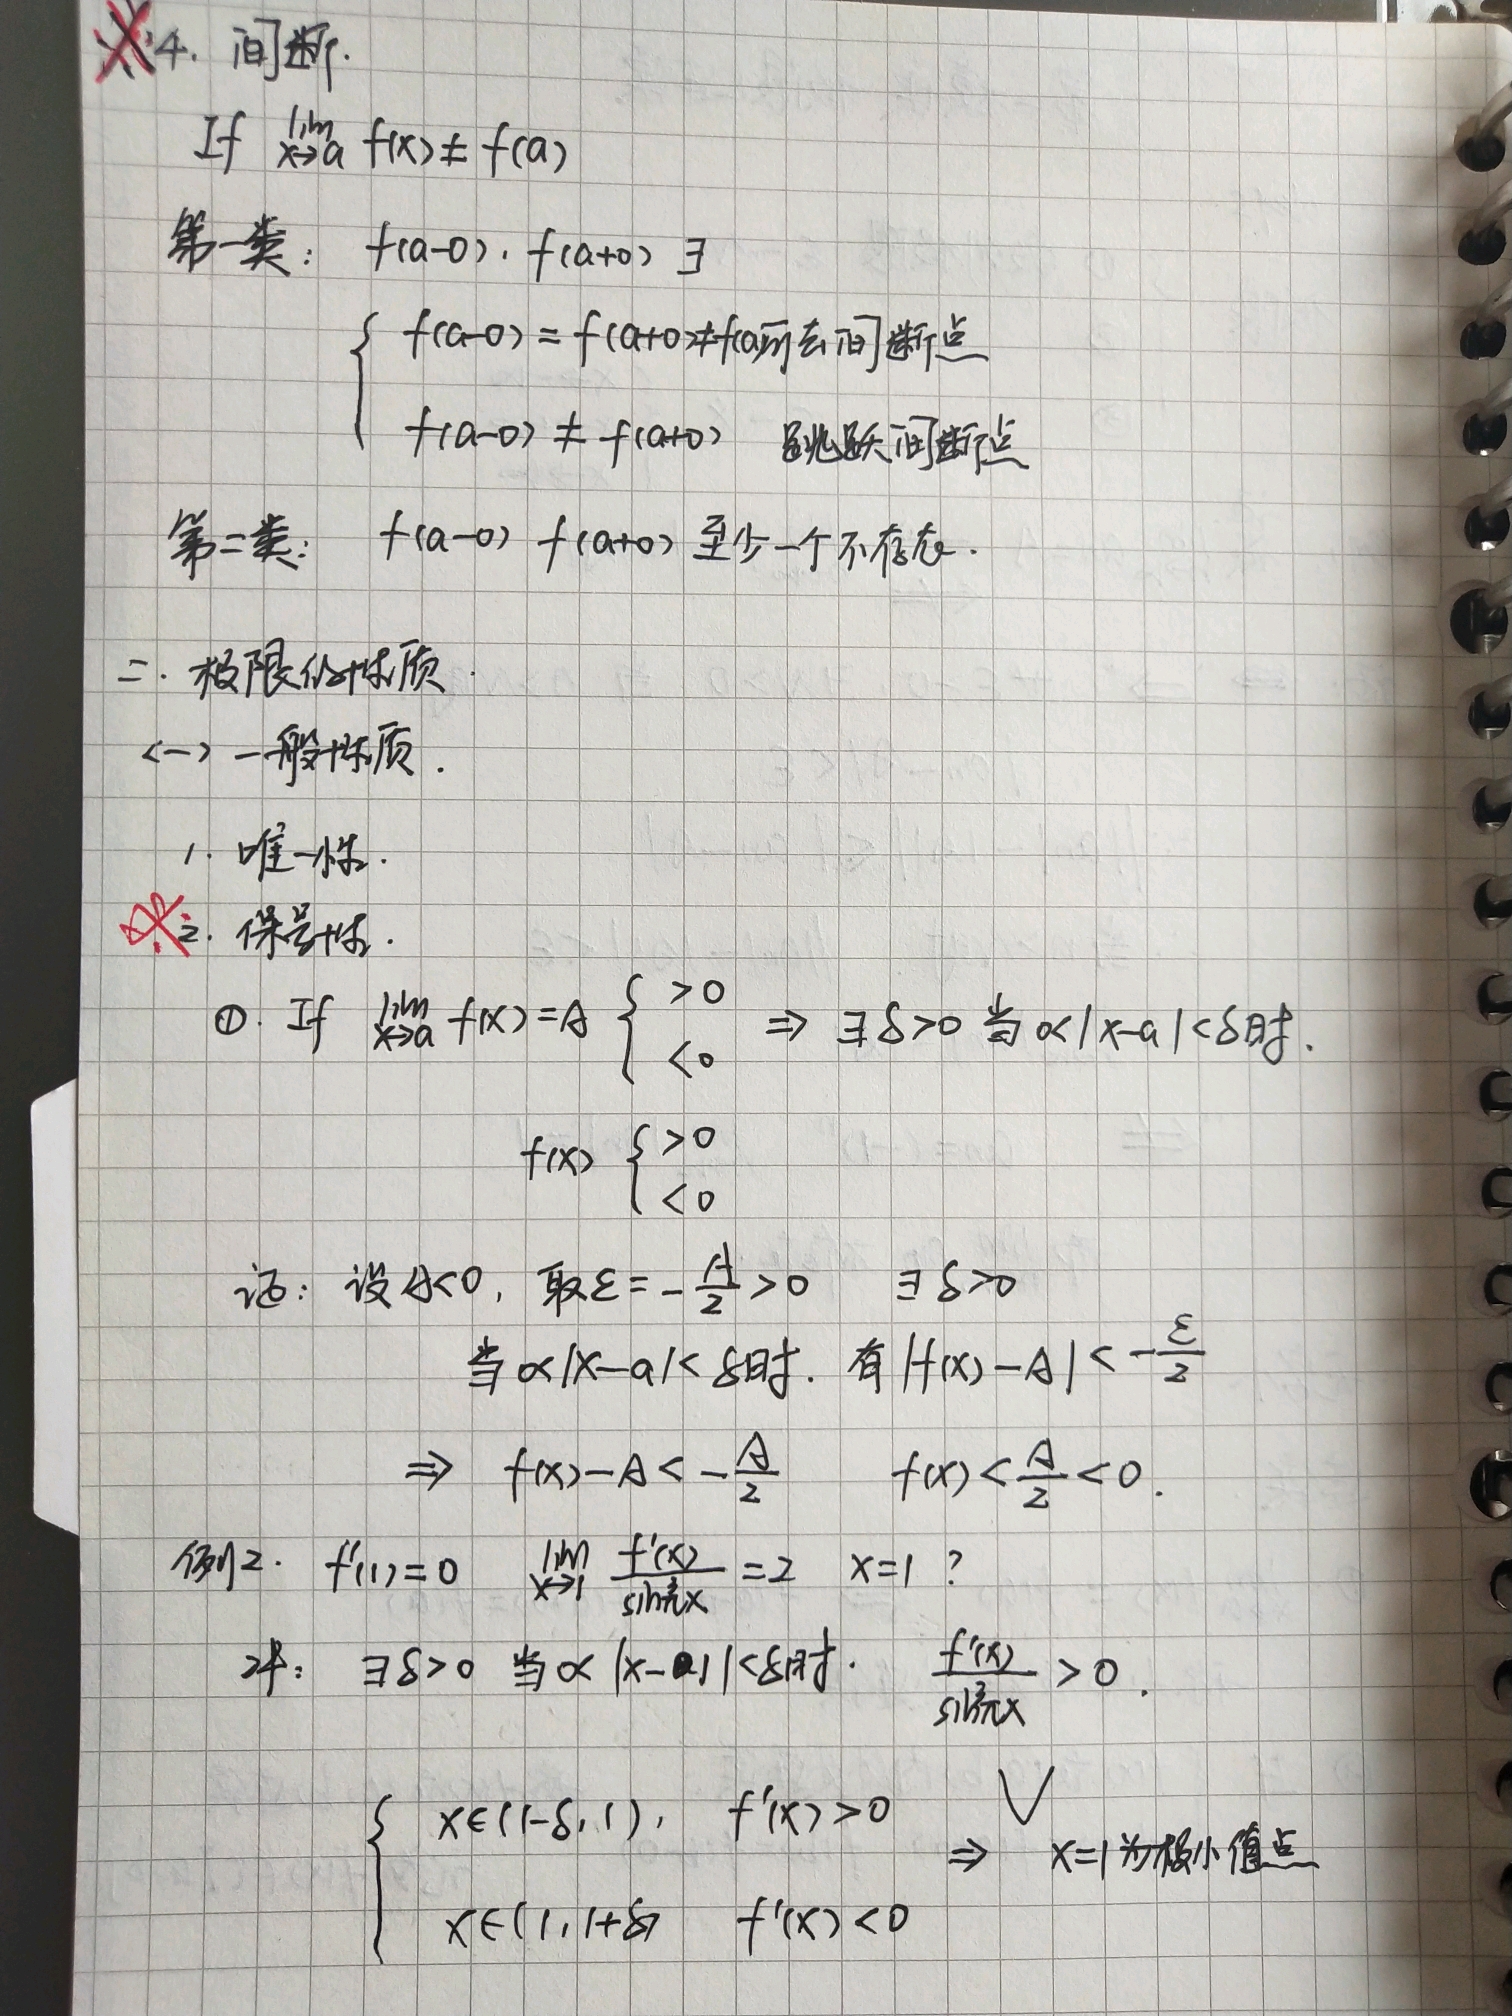 ※4. 间断.
If lim x→a f(x) ≠ f(a)
第一类: f(a-0), f(a+0) ∃
{ f(a-0) = f(a+0) ≠ f(a) 可去间断点
f(a-0) ≠ f(a+0) 跳跃间断点
第二类: f(a-0) f(a+0) 至少一个不存在.
二. 极限的性质.
<一> 一般性质.
1. 唯一性.
※2. 保号性.
①. If lim x→a f(x) = A { >0 <0 ⇒ ∃ δ>0 当 0<|x-a|<δ时.
f(x) { >0 <0
证: 设A<0, 取ε = -A/2 > 0 ∃ δ>0
当 0<|x-a|<δ时. 有 |f(x)-A| < -ε/2
⇒ f(x)-A < -A/2 f(x) < A/2 < 0.
例2. f'(1)=0 lim x→1 f'(x)/sin³πx = 2 x=1 ?
解: ∃δ>0 当0< |x-1|<δ时. f'(x)/sin³πx > 0.
{ x∈(1-δ,1), f'(x)>0
⇒ x=1为极小值点
x∈(1,1+δ) f'(x)<0